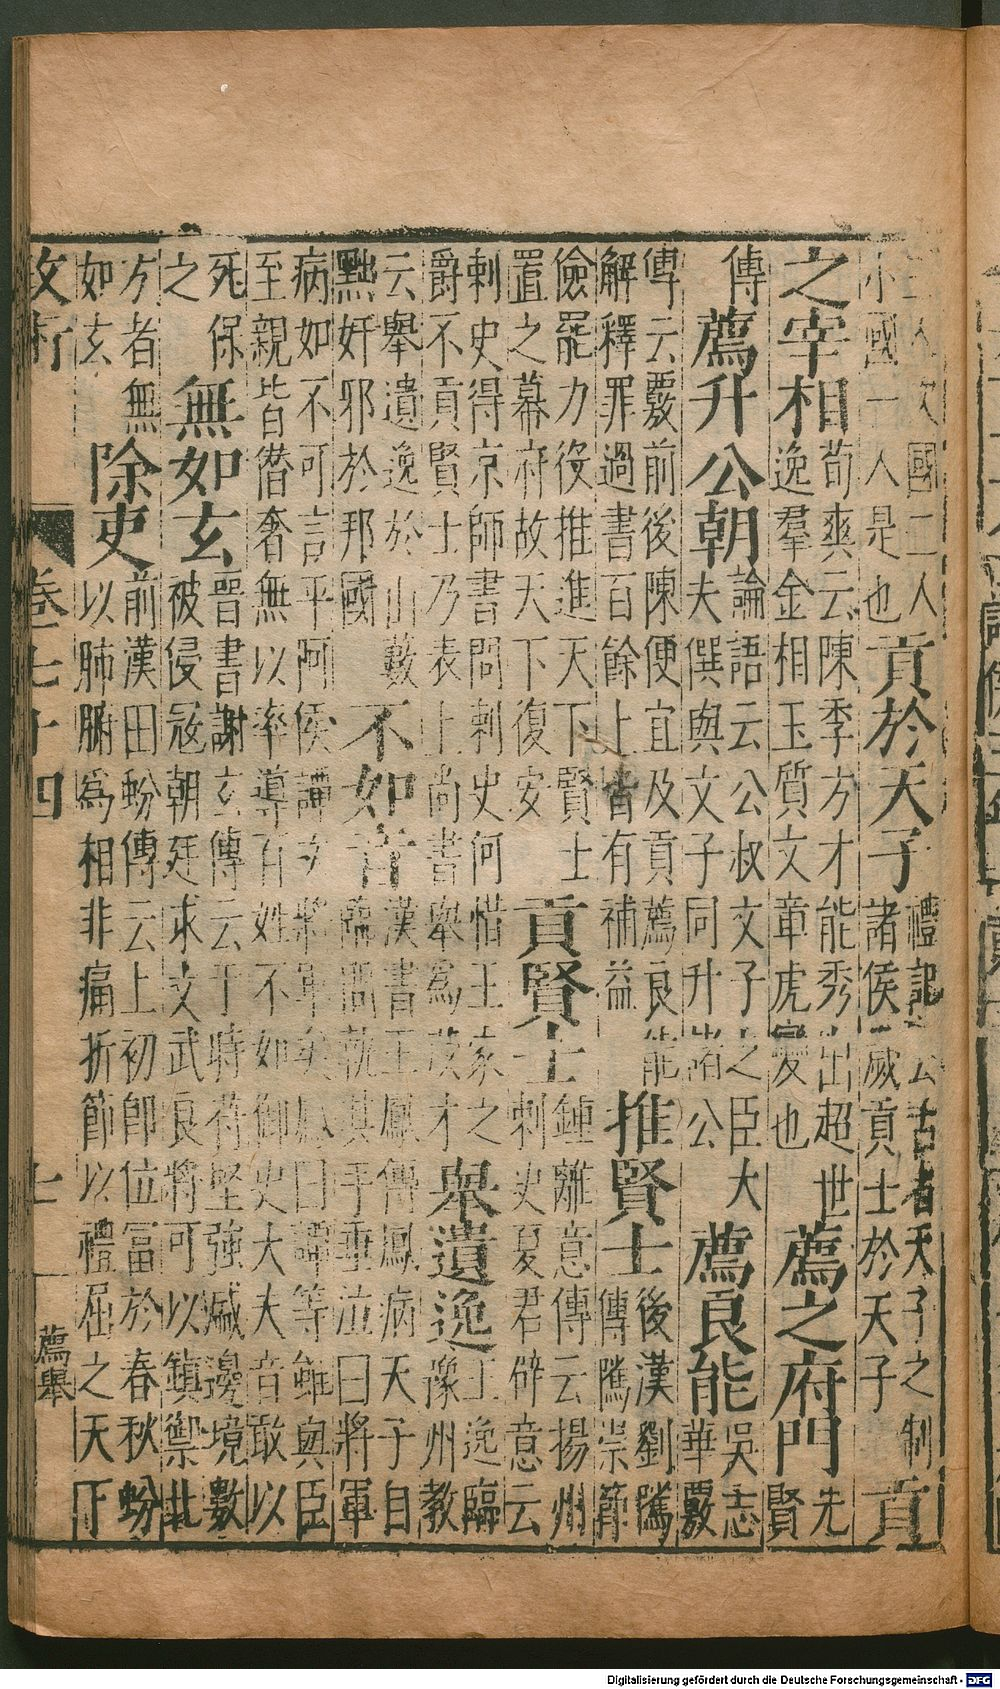 人次國二人
小國一人是也
貢於天子
禮記云古者天子之制
諸侯歲貢士於天子
貢
之宰相
荀爽云陳季方才能秀出超世
逸羣金相玉質文章虎變也
薦之府門
先
賢
傳
薦升公朝
論語云公叔文子之臣大
夫僎與文子同升諸公
薦良能
吳志
華覈
傳云覈前後陳便宜及貢薦良能
解釋罪過書百餘上皆有補益
推賢士
後漢劉騭
傳騭崇節
儉罷力役推進天下賢士
置之幕府故天下復安
貢賢士
鍾離意傳云揚州
刺史夏君辟意云
刺史得京師書問刺史何惜王家之
爵不貢賢士乃表上尚書舉為茂才
舉遺逸
王逸臨
豫州教
云舉遺逸於山藪
黜奸邪於邦國
不如音
漢書王鳳傳鳳病天子自
臨問執其手垂泣曰將軍
病如不可言平阿侯譚次將軍矣鳳曰譚等雖與臣
至親皆僭奢無以率導百姓不如御史大夫音敢以
死保
之
無如玄
晉書謝玄傳云于時苻堅強盛邊境數
被侵冦朝廷求文武良將可以鎮禦北
方者無
如玄
除吏
前漢田蚡傳云上初即位冨於春秋蚡
以肺腑為相非痛折節以禮屈之天下
政術 卷七十四 七 薦舉
Digitalisierung gefördert durch die Deutsche Forschungsgemeinschaft - DFG